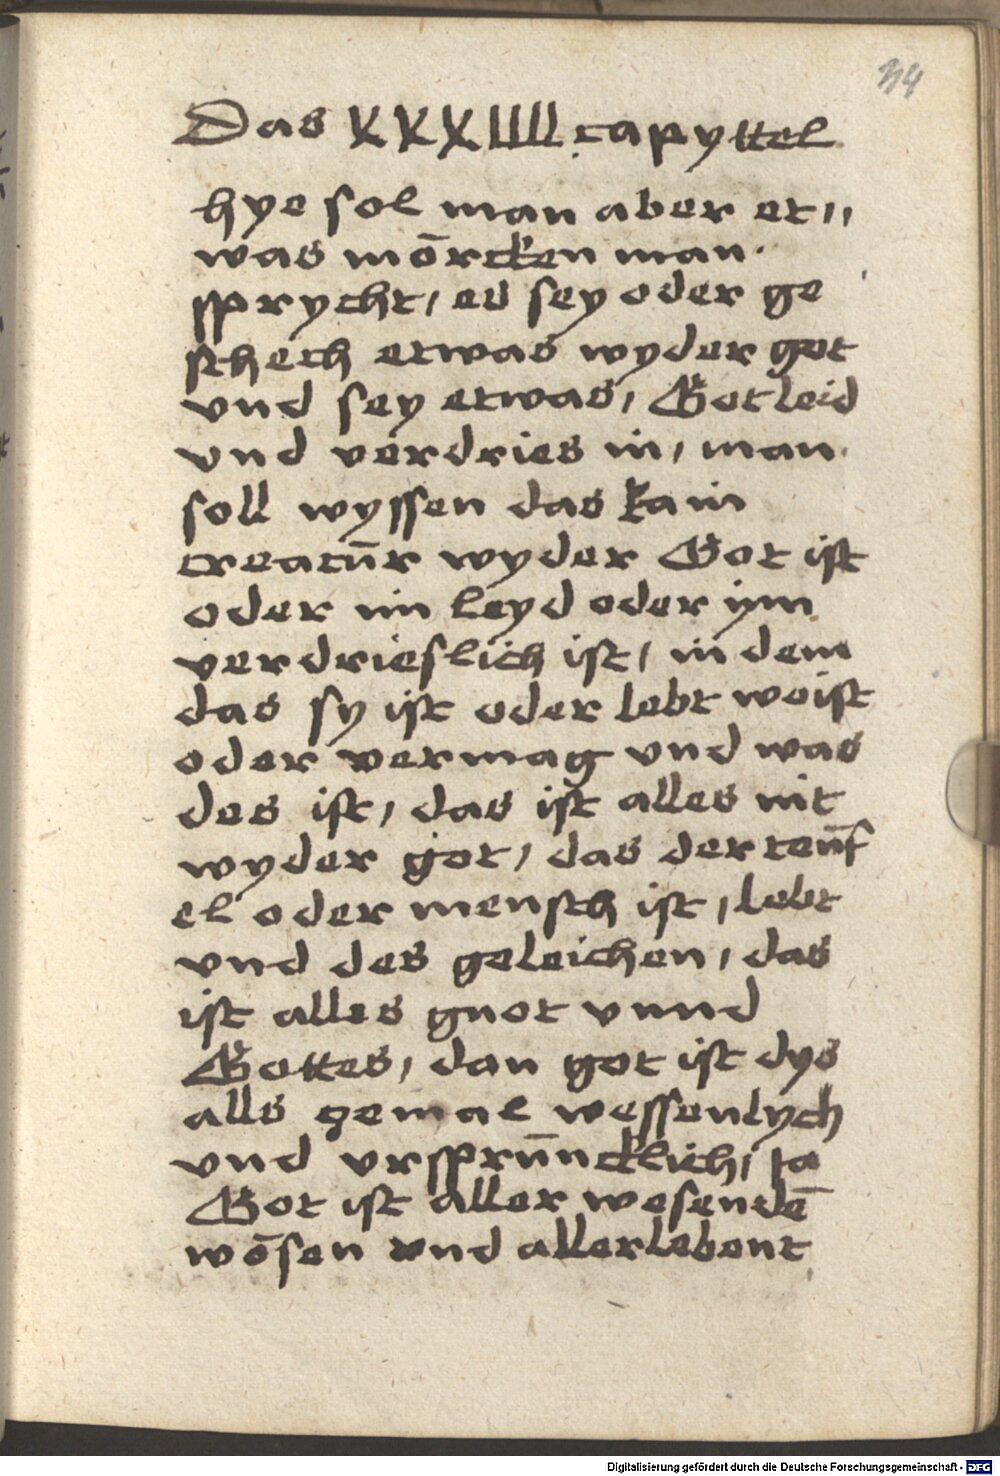 34
Das XXXIIII capyttel
hye sol man aber et„
was mörcken man
sprycht, es sey oder ge
schech etwas wyder got
vnd sey etwas, Got leid
vnd verdries in, man
soll wyssen das kain
creatur̄ wyder Got ist
oder im leyd oder ym
verdrieslich ist, in dem
das sy ist oder lebt woist
oder vermag vnd was
des ist, das ist alles nit
wyder got, das der teūf
el oder mensch ist, lebt
vnd des geleichen, das
ist alles guot vnnd
Gottes, dan got ist dys
alls gemal wessenlych
vnd vrsprūncklich, ia
Got ist aller wesendē
wōsen vnd aller lebent
Digitalisierung gefördert durch die Deutsche Forschungsgemeinschaft - DFG